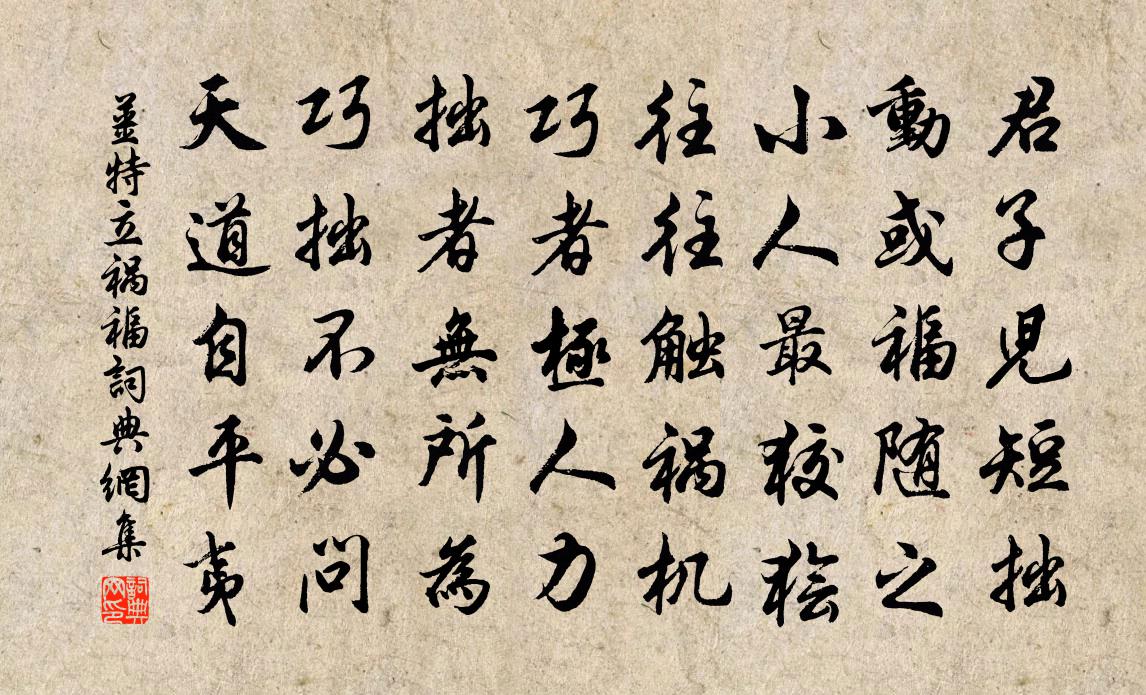 君子見短拙
動或福随之
小人最狡獪
往往触祸机
巧者極人力
拙者無所為
巧拙不必問
天道自平夷
薑特立祸福詞典網集
詞典网印